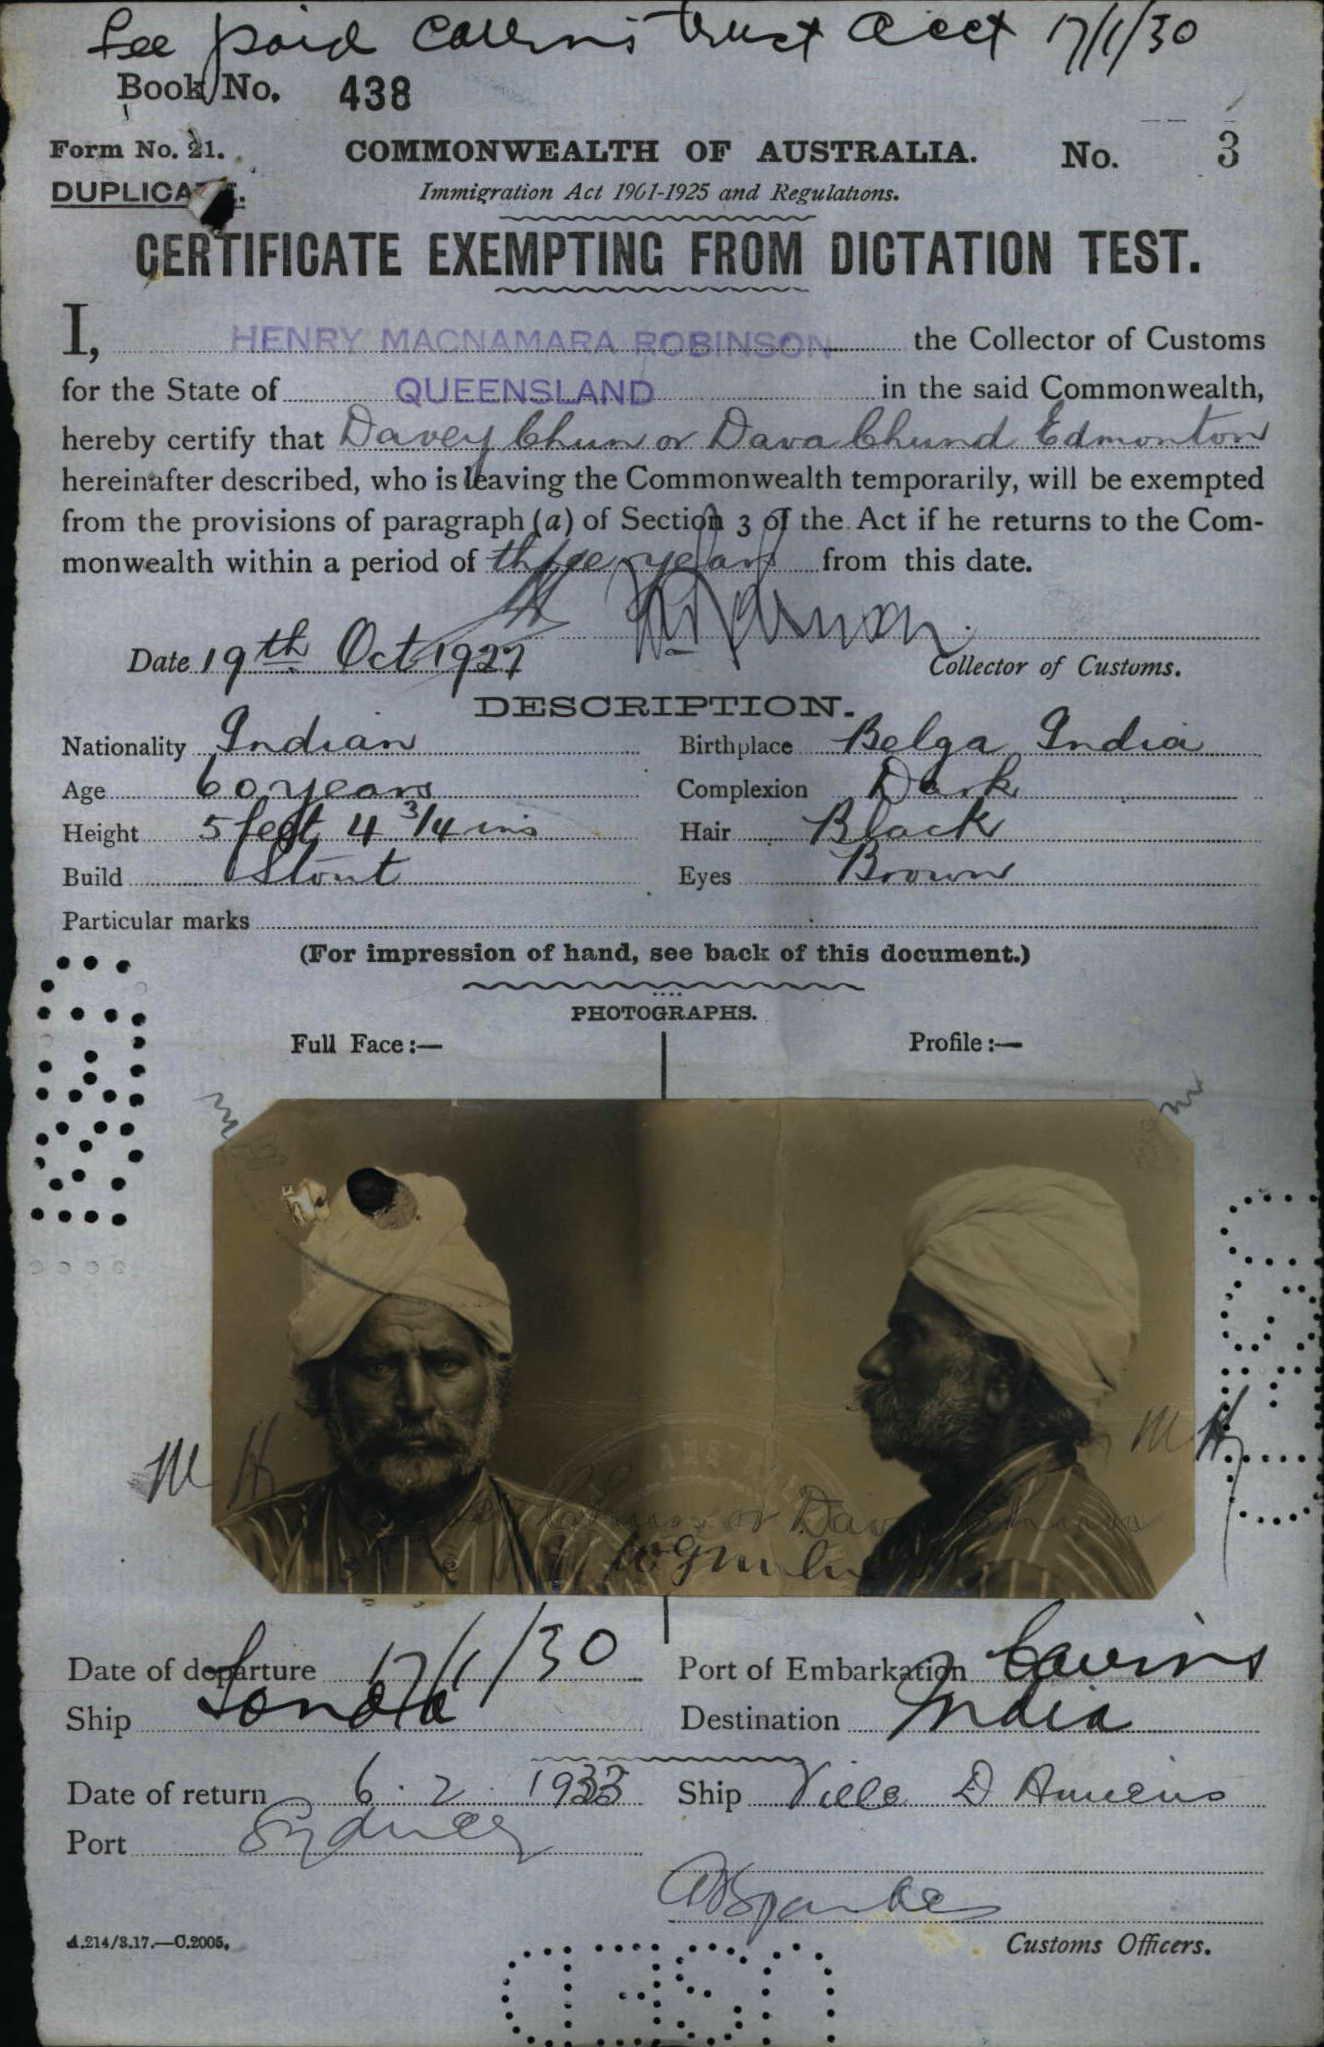 Fee paid Cairns Trust Acct 17/1/30
Book No. 438
Form No. 21. COMMONWEALTH OF AUSTRALIA. No. 3
DUPLICATE. Immigration Act 1901-1925 and Regulations.
CERTIFICATE EXEMPTING FROM DICTATION TEST.
I, HENRY MACNAMARA ROBINSON the Collector of Customs
for the State of QUEENSLAND in the said Commonwealth,
hereby certify that Davey Chun or Dava Chund Edmonton
hereinafter described, who is leaving the Commonwealth temporarily, will be exempted
from the provisions of paragraph (a) of Section 3 of the Act if he returns to the Com-
monwealth within a period of three years from this date.
Date 19th Oct 1927 Collector of Customs.
DESCRIPTION.
Nationality Indian Birthplace Belga India
Age 60 years Complexion Dark
Height 5 feet 4 3/4 ins Hair Black
Build Stout Eyes Brown
Particular marks
(For impression of hand, see back of this document.)
PHOTOGRAPHS.
Full Face:— Profile:—
M H M H
or Dav
Date of departure 17/1/30 Port of Embarkation Cairns
Ship Destination India
Date of return 6.2.1933 Ship Ville D Amiens
Port Sydney
Customs Officers.
A.214/3.17.—C.2005.
USED